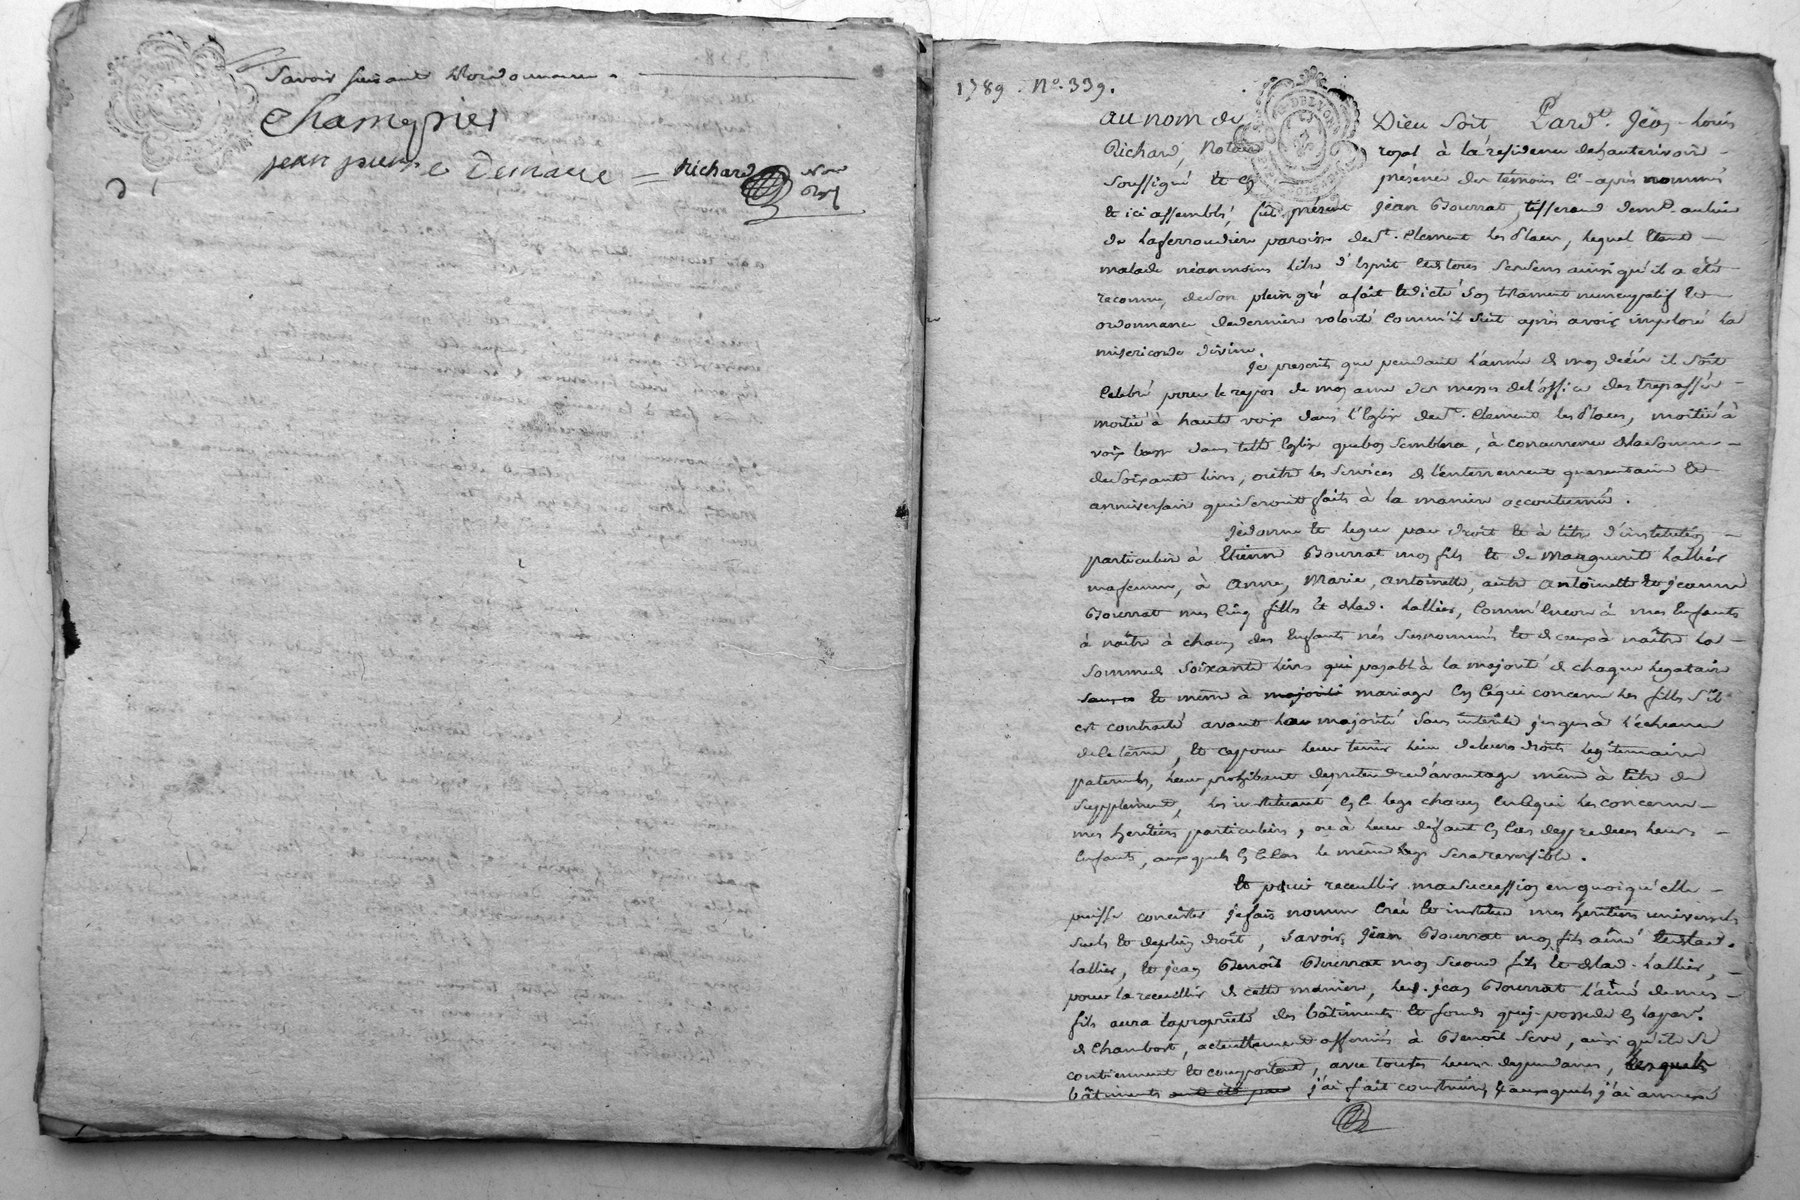 Savoir suivant l'ordonnance.
Champnier
jean pierre Demare = Richard Nore Royl
1789. No. 339.
au nom de Dieu Soit Pardt. Jean-Louis
Richard, Notaire royal à la résidence dehauterivoire
soussigné et en présence des témoins ci-après nommés
et ici assemblés, fut présent jean Bourrat, tisserand demt. au lieu
de laferrondiere paroisse de St. Clement les Places, lequel étant
malade néanmoins libre d'Esprit etdetous sessens ainsi qu'il a été
reconnu, deson plein gré afait etdicté son testament nuncupatif et
ordonnance dedernière volonté comm'il suit après avoir imploré la
misericorde divine.
Je prescris que pendant l'année de mon décès il soit
celebré pour le repos de mon ame des messes del'office des trepassés
moitié à haute voix dans l'Eglise de St. Clement les Places, moitié à
voix basse dans telle Eglise quebon semblera, à concurrence delasomme
desoixante livres, outre les services de l'enterrement quarantaine et
anniversaire quiseront faits à la maniere accoutumée.
Jedonne et legue par droit et à titre d'institution
particuliere à Etienne Bourrat mon fils et de Marguerite Lallier
mafemme, à Anne, Marie, Antoinette, autre Antoinette et jeanne
Bourrat mes cinq filles et delad. Lallier, comm'encore à mes Enfants
à naître à chacun des Enfants nés susnommés et de ceux à naître la
somme de soixante livres qui payable à la majorité de chaque legataire
et même à majorité mariage en cequi concerne les filles s'il
est contracté avant leur majorité sans intérêts jusques à l'écheance
deceterme, et cepour leur tenir lieu deleurs droits legitimaires
paternels, leur prohibant depretendre d'avantage même à titre de
supplément, les instituant en ce legs chacun encequi les concerne
mes heritiers particuliers, ou à leur défaut en cas deprédécès leurs
Enfants, auxquels en cecas le même legs serareversible.
Et pour recueillir masuccession en quoiqu'elle
puisse consister jefais nomme créé et institue mes heritiers universels
seuls et deplein droit, savoir, Jean Bourrat mon fils aîné et delad.
Lallier, et jean Benoît Bourrat mon second fils et delad. Lallier,
pour la recueillir de cette maniere, led. jean Bourrat l'aîné demes
fils aura lapropriété des bâtiments et fonds quej-possede en lapar.
de Chambost, actuellement affermés à Benoît Serve, ainsi qu'ils se
contiennent et comportent, avec toutes leurs dependances, lesquels
bâtiments ont été par j'ai fait construire, & auxquels j'ai annexé